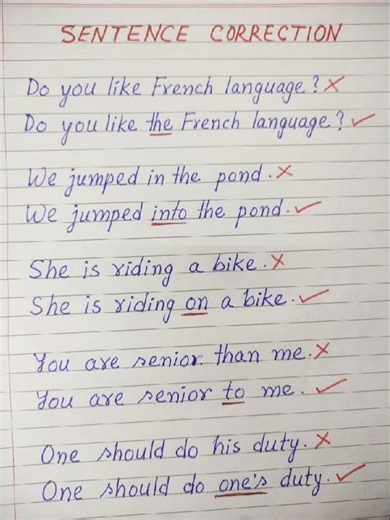 SENTENCE CORRECTION
Do you like French language? ✗
Do you like the French language? ✓
We jumped in the pond. ✗
We jumped into the pond. ✓
She is riding a bike. ✗
She is riding on a bike. ✓
You are senior than me. ✗
You are senior to me. ✓
One should do his duty. ✗
One should do one's duty. ✓